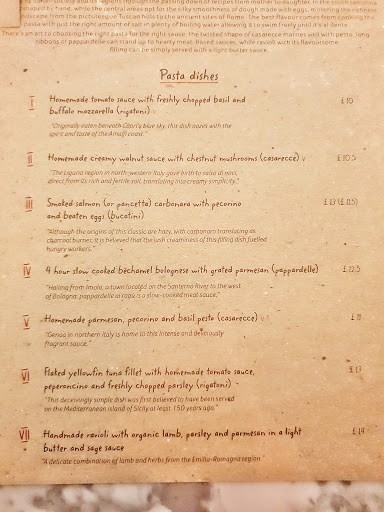 Italian society and its regions through the passing down of recipes from mother to daughter. In the south
shaped by hand, while the central areas opt for the silky smoothness of dough made with eggs, mirroring the richness
landscape from the picturesque Tuscan hills to the ancient sites of Rome. The best flavour comes from cooking the
pasta with just the right amount of salt in plenty of boiling water allowing it to swim freely until it's al dente.
There's an art to choosing the right pasta for the right sauce. The twisted shape of casarecce marries well with pesto, long
ribbons of pappardelle can stand up to hearty meat based sauces, while ravioli with its flavoursome
filling can be simply served with a light butter sauce.
Pasta dishes
I Homemade tomato sauce with freshly chopped basil and £10
buffalo mozzarella (rigatoni) v
"Originally eaten beneath Capri's blue sky, this dish oozes with the
spirit and taste of the Amalfi coast."
II Homemade creamy walnut sauce with chestnut mushrooms (casarecce) v £10.5
"The Liguria region in north-western Italy gave birth to salsa di noci,
direct from its rich and fertile soil, translating into creamy simplicity."
III Smoked salmon (or pancetta) carbonara with pecorino £13 (£11.5)
and beaten eggs (bucatini)
"Although the origins of this classic are hazy, with carbonaro translating as
charcoal burner, it is believed that the lush creaminess of this filling dish fuelled
hungry workers."
IV 4 hour slow cooked béchamel bolognese with grated parmesan (pappardelle) £12.5
"Hailing from Imola, a town located on the Santerno River to the west
of Bologna, pappardelle al ragù is a slow-cooked meat sauce."
V Homemade parmesan, pecorino and basil pesto (casarecce) v £11
"Genoa in northern Italy is home to this intense and deliciously
fragrant sauce."
VI Flaked yellowfin tuna fillet with homemade tomato sauce, £13
peperoncino and freshly chopped parsley (rigatoni)
"This deceivingly simple dish was first believed to have been served
on the Mediterranean island of Sicily at least 150 years ago."
VII Handmade ravioli with organic lamb, parsley and parmesan in a light £14
butter and sage sauce
"A delicate combination of lamb and herbs from the Emilia-Romagna region."